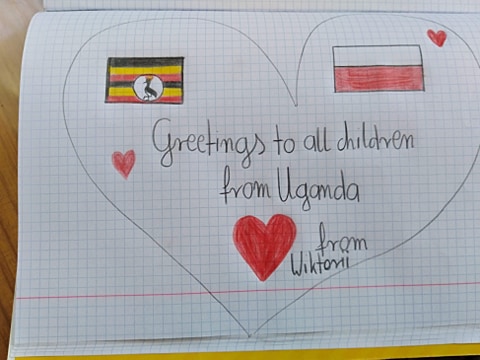 Greetings to all children
from Uganda
from
Wiktorii